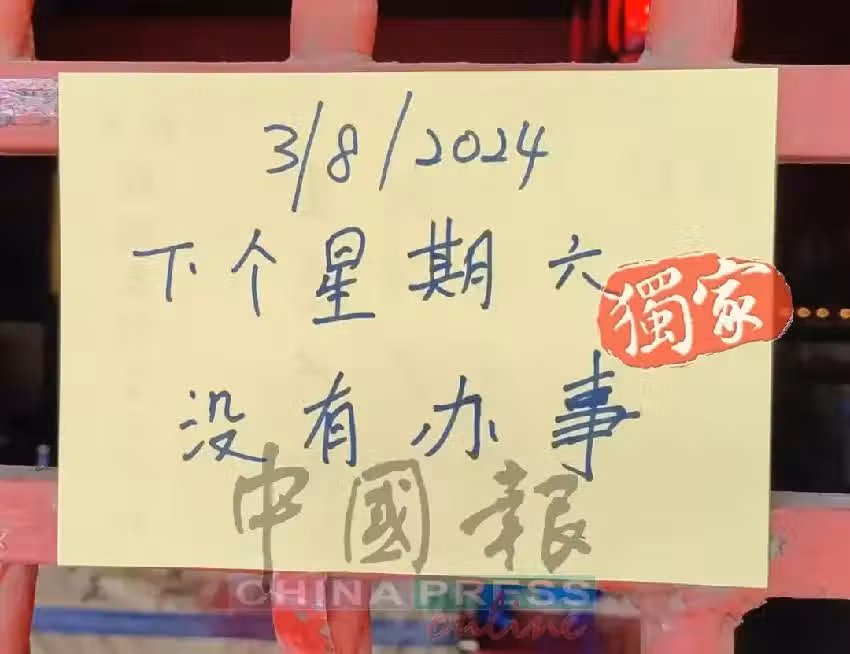 3/8/2024
下个星期六
獨家
没有办事
中國報
CHINA PRESS
online